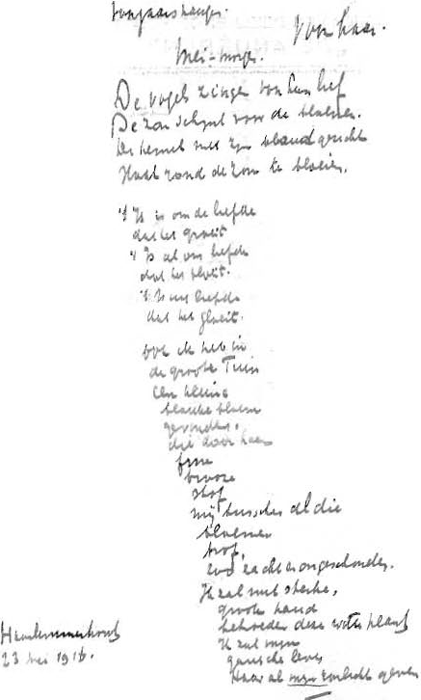 Voorjaarsliedje.
Voor haar.
Mei-morgen.
De vogels zingen van hun lief
De zon schynt voor de bloemen.
De hemel met zyn blauw gezicht
staat rond de zon te bloeien.
't Is is om de liefde
dat het groeit
't Is al om liefde
dat het bloeit.
't Is uit liefde
dat het gloeit.
ook ik heb in
de groote Tuin
een kleine
blanke bloem
gevonden,
die door haar
fyne
brooze
stof
my tusschen al die
bloemen
trof,
zoo zacht en ongeschonden.
Ik zal met sterke,
groote hand
behoeden deze witte plant
Ik zal myn
gansche leven
Haar al myn zonlicht geven
Haarlemmerhout
23 mei 1916.